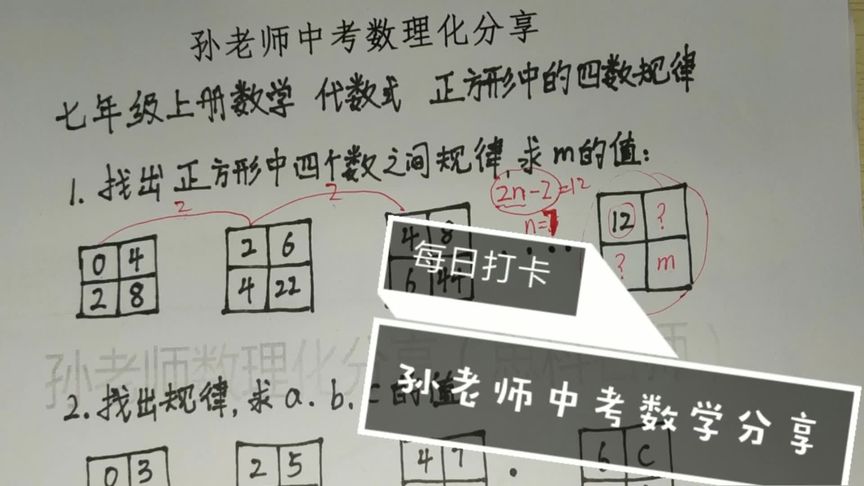 孙老师中考数理化分享
七年级上册数学 代数式 正方形中的四数规律
1. 找出正方形中四个数之间规律,求m的值:
2 2 2n-2=12
n=7
0 4 2 6 4 8 12 ?
2 8 4 22 6 44 ... ? m
每日打卡
孙老师中考数学分享
孙老师数理化分享
2. 找出规律,求a.b.c的值
0 3 2 5 4 7 . 6 C